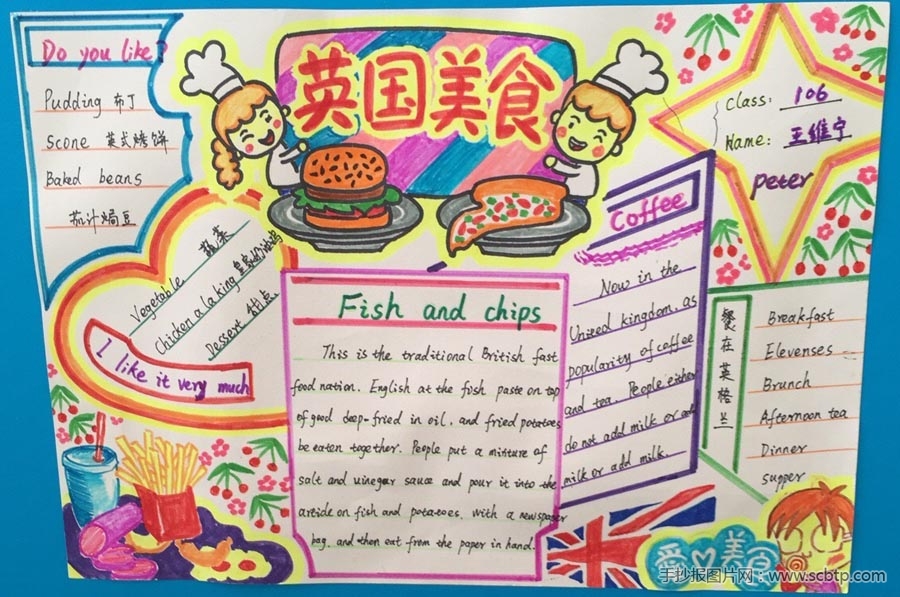 英国美食
Do you like?
Pudding 布丁
scone 英式烤饼
Baked beans
茄汁焗豆
class: 106
Name: 王维宁
peter
Vegetable 蔬菜
Chicken a la king 皇家奶油鸡
Dessert 甜点
I like it very much
Fish and chips
This is the traditional British fast
food nation. English at the fish paste on top
of good deep-fried in oil, and fried potatoes
be eaten together. People put a mixture of
salt and vinegar sauce and pour it into the
article on fish and potatoes, with a newspaper
bag, and then eat from the paper in hand.
Coffee
Now in the
United kingdom, as
popularity of coffee
and tea. People either
do not add milk or add
milk or add milk.
餐在英格兰
Breakfast
Elevenses
Brunch
Afternoon tea
Dinner
supper
爱美食
手抄报图片网：www.scbtp.com